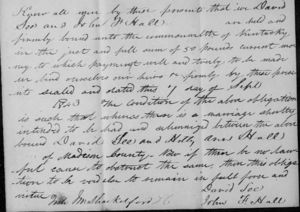 Know all men by these presents that we David
Gee and John F Hall are held and
firmly bound unto the commonwealth of Kentucky
in the just and full sum of 50 pounds current mo
ney to which payment well and truly to be made
we bind ourselves our heirs & firmly by these presents
sealed and dated this day of Sept
The condition of the above obligation
is such that whereas there is a marriage shortly
intended to be had and solemnized between the above
bound David Gee and Hall
of Madison County. Now if there be no lawful
cause to obstruct the same then this obliga
tion to be void else to remain in full force and
virtue
David Gee
John F Hall